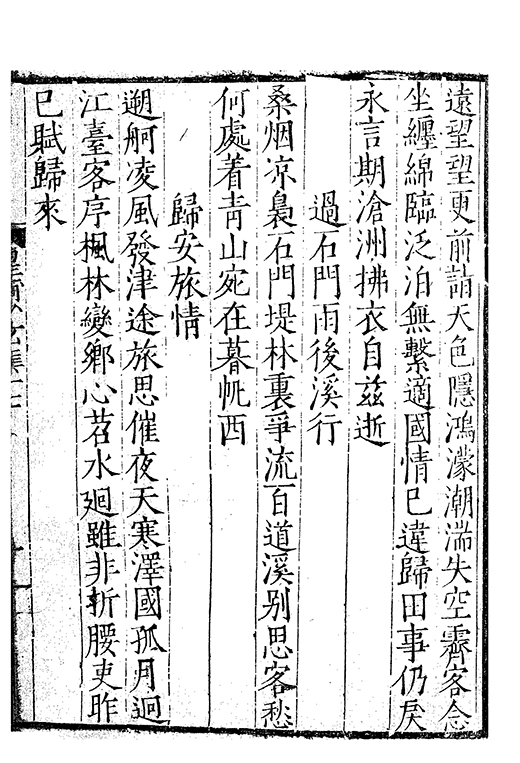 遠望望更前詣天色隱鴻濛潮湍失空霽客念
坐纏綿臨泛泊無繫適國情已違歸田事仍戾
永言期滄洲拂衣自兹逝
過石門雨後溪行
桑烟凉裊石門堤林裏爭流百道溪别思客愁
何處着青山宛在暮帆西
歸安旅情
遡舸凌風發津途旅思催夜天寒澤國孤月迥
江臺客序楓林變鄉心苕水廻雖非折腰吏昨
已賦歸來
皇甫少玄集